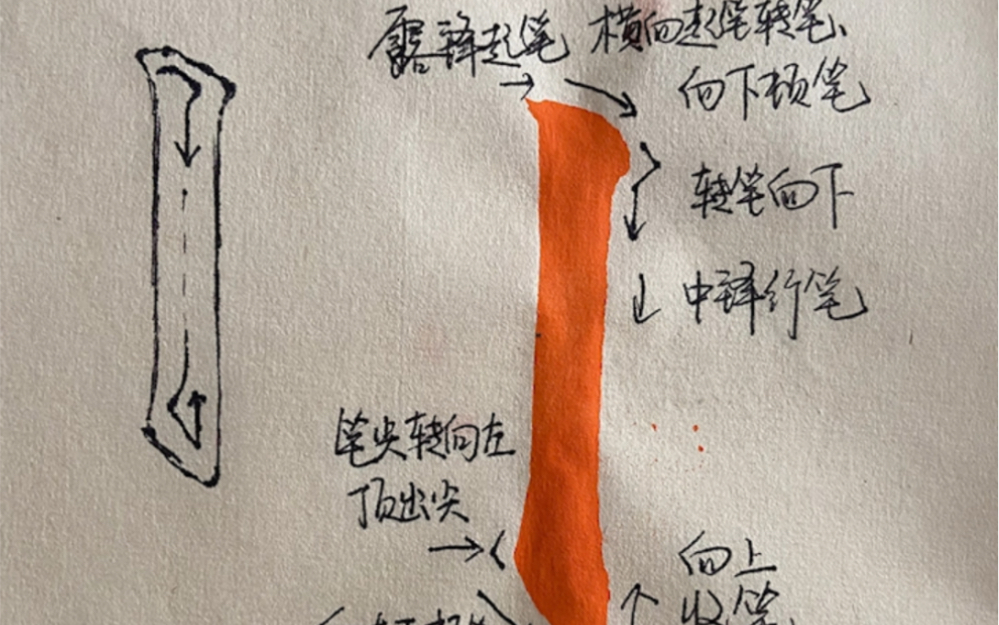 露锋起笔 横向起笔转笔、
向下顿笔
转笔向下
中锋行笔
笔尖转向左
顶出尖
向上
收笔